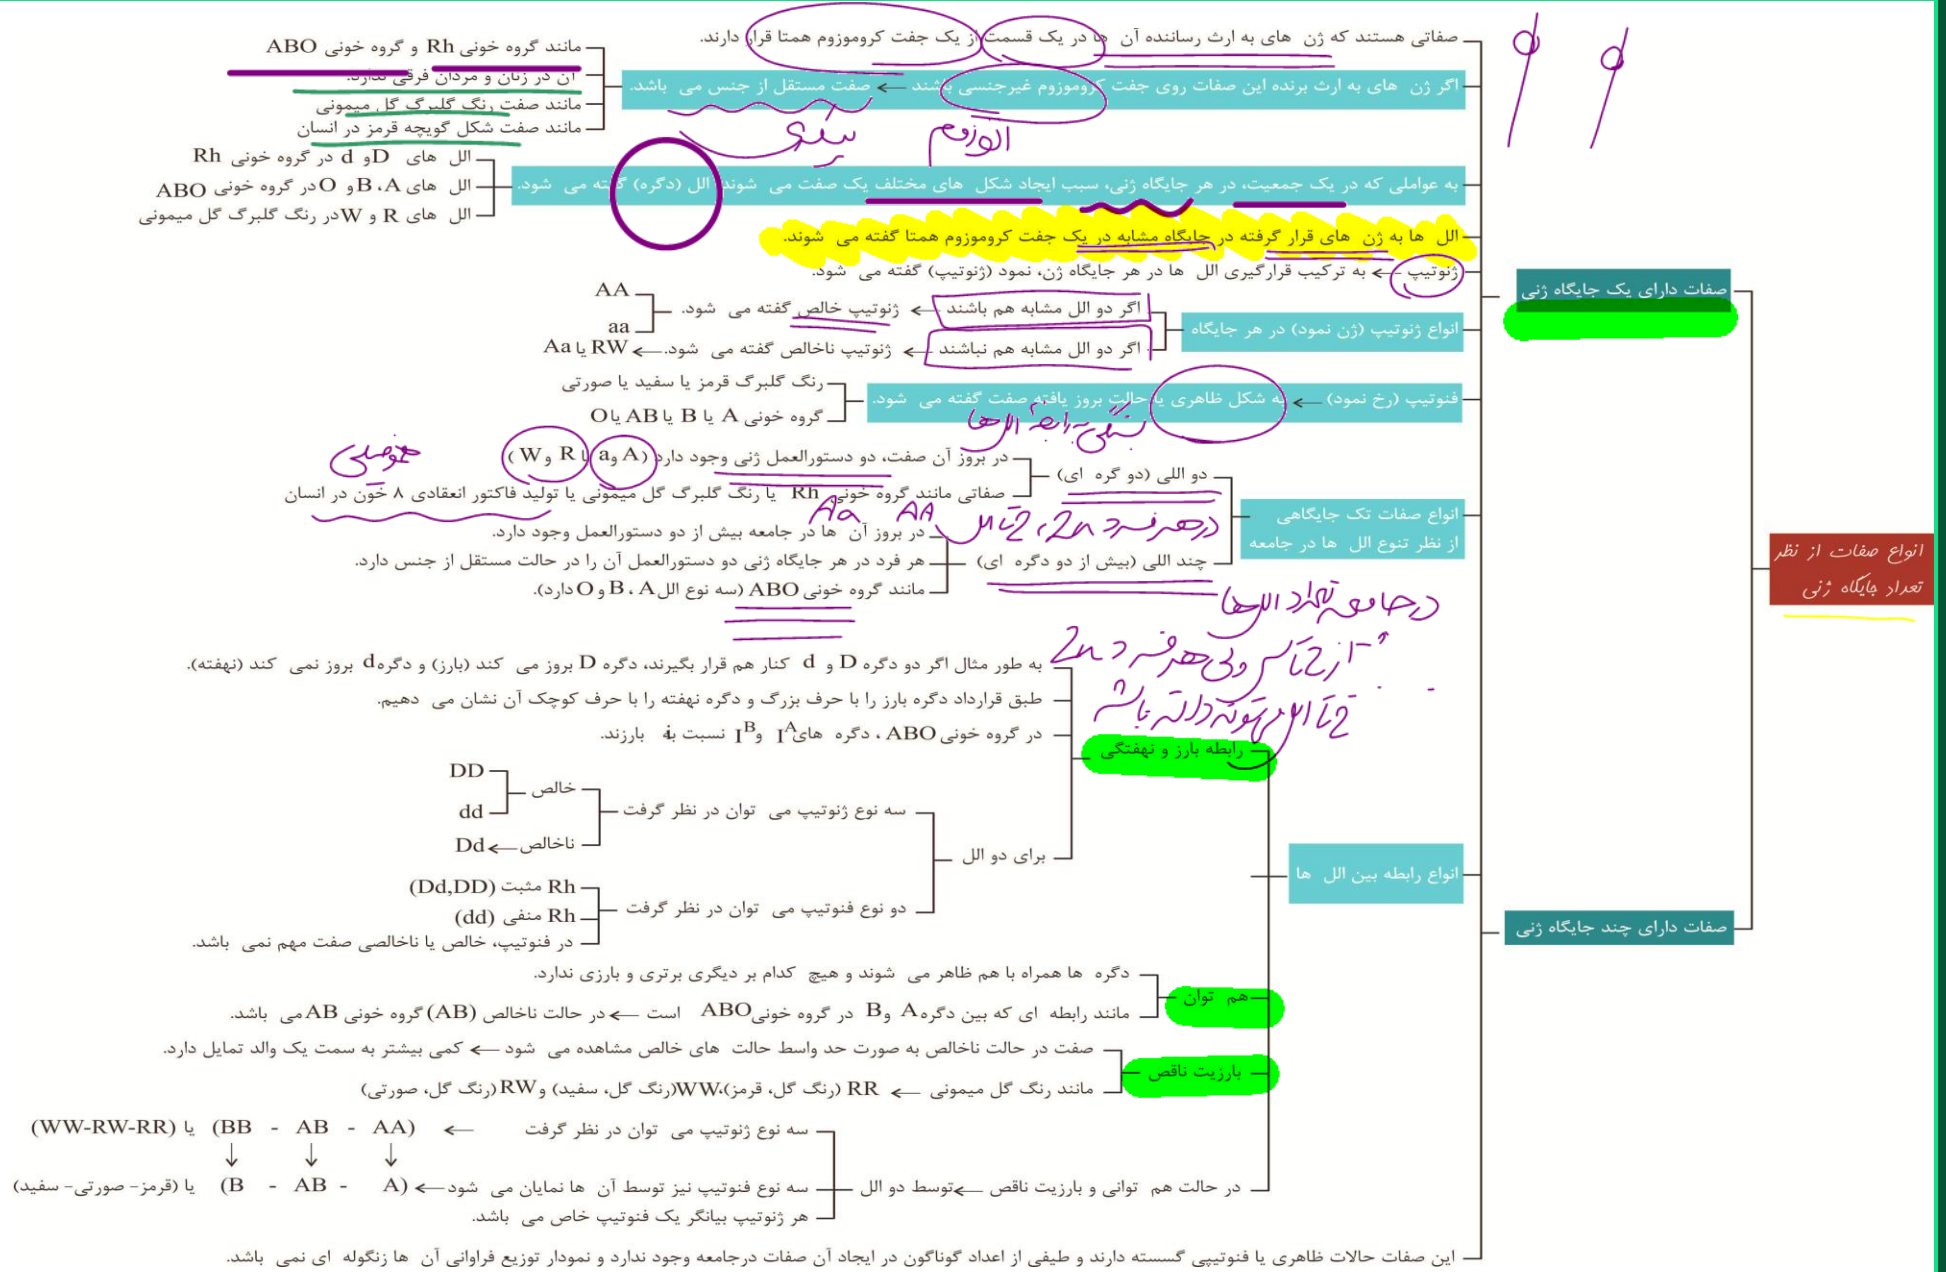 انواع صفات از نظر
تعداد جایگاه ژنی
صفات دارای یک جایگاه ژنی
صفاتی هستند که ژن های به ارث رساننده آن ها در یک قسمت از یک جفت کروموزوم همتا قرار دارند.
اگر ژن های به ارث برنده این صفات روی جفت کروموزوم غیرجنسی باشند ← صفت مستقل از جنس می باشد.
اتوزوم
مانند گروه خونی Rh و گروه خونی ABO
آن در زنان و مردان فرقی ندارد.
مانند صفت رنگ گلبرگ گل میمونی
مانند صفت شکل گویچه قرمز در انسان
به عواملی که در یک جمعیت، در هر جایگاه ژنی، سبب ایجاد شکل های مختلف یک صفت می شوند، الل (دگره) گفته می شود.
الل های D و d در گروه خونی Rh
الل های A، B و O در گروه خونی ABO
الل های R و W در رنگ گلبرگ گل میمونی
الل ها به ژن های قرار گرفته در جایگاه مشابه در یک جفت کروموزوم همتا گفته می شوند.
ژنوتیپ ← به ترکیب قرارگیری الل ها در هر جایگاه ژن، نمود (ژنوتیپ) گفته می شود.
انواع ژنوتیپ (ژن نمود) در هر جایگاه
اگر دو الل مشابه هم باشند ← ژنوتیپ خالص گفته می شود.
AA
aa
اگر دو الل مشابه هم نباشند ← ژنوتیپ ناخالص گفته می شود. ← RW یا Aa
فنوتیپ (رخ نمود) ← به شکل ظاهری یا حالت بروز یافته صفت گفته می شود.
رنگ گلبرگ قرمز یا سفید یا صورتی
گروه خونی A یا B یا AB یا O
بستگی به رابطه اللها
انواع صفات تک جایگاهی
از نظر تنوع الل ها در جامعه
دو اللی (دو گره ای)
در بروز آن صفت، دو دستورالعمل ژنی وجود دارد (A و a یا R و W)
صفاتی مانند گروه خونی Rh یا رنگ گلبرگ گل میمونی یا تولید فاکتور انعقادی ۸ خون در انسان
در هر فرد 2n، 2 تا الل AA Aa
چند اللی (بیش از دو دگره ای)
در بروز آن ها در جامعه بیش از دو دستورالعمل وجود دارد.
هر فرد در هر جایگاه ژنی دو دستورالعمل آن را در حالت مستقل از جنس دارد.
مانند گروه خونی ABO (سه نوع الل A، B و O دارد).
در جامعه تعداد اللها
از 2 تا ولی هر فرد 2n
2 تا الل می تونه داشته باشه
انواع رابطه بین الل ها
رابطه بارز و نهفتگی
به طور مثال اگر دو دگره D و d کنار هم قرار بگیرند، دگره D بروز می کند (بارز) و دگره d بروز نمی کند (نهفته).
طبق قرارداد دگره بارز را با حرف بزرگ و دگره نهفته را با حرف کوچک آن نشان می دهیم.
در گروه خونی ABO، دگره های I^A و I^B نسبت به i بارزند.
برای دو الل
سه نوع ژنوتیپ می توان در نظر گرفت
خالص
DD
dd
ناخالص ← Dd
دو نوع فنوتیپ می توان در نظر گرفت
Rh مثبت (Dd,DD)
Rh منفی (dd)
در فنوتیپ، خالص یا ناخالصی صفت مهم نمی باشد.
هم توان
دگره ها همراه با هم ظاهر می شوند و هیچ کدام بر دیگری برتری و بارزی ندارد.
مانند رابطه ای که بین دگره A و B در گروه خونی ABO است ← در حالت ناخالص (AB) گروه خونی AB می باشد.
بارزیت ناقص
صفت در حالت ناخالص به صورت حد واسط حالت های خالص مشاهده می شود ← کمی بیشتر به سمت یک والد تمایل دارد.
مانند رنگ گل میمونی ← RR (رنگ گل، قرمز)، WW (رنگ گل، سفید) و RW (رنگ گل، صورتی)
در حالت هم توانی و بارزیت ناقص ← توسط دو الل
سه نوع ژنوتیپ می توان در نظر گرفت ← (AA - AB - BB) یا (WW-RW-RR)
↓ ↓ ↓
سه نوع فنوتیپ نیز توسط آن ها نمایان می شود ← (A - AB - B) یا (قرمز- صورتی- سفید)
هر ژنوتیپ بیانگر یک فنوتیپ خاص می باشد.
این صفات حالات ظاهری یا فنوتیپی گسسته دارند و طیفی از اعداد گوناگون در ایجاد آن صفات درجامعه وجود ندارد و نمودار توزیع فراوانی آن ها زنگوله ای نمی باشد.
صفات دارای چند جایگاه ژنی